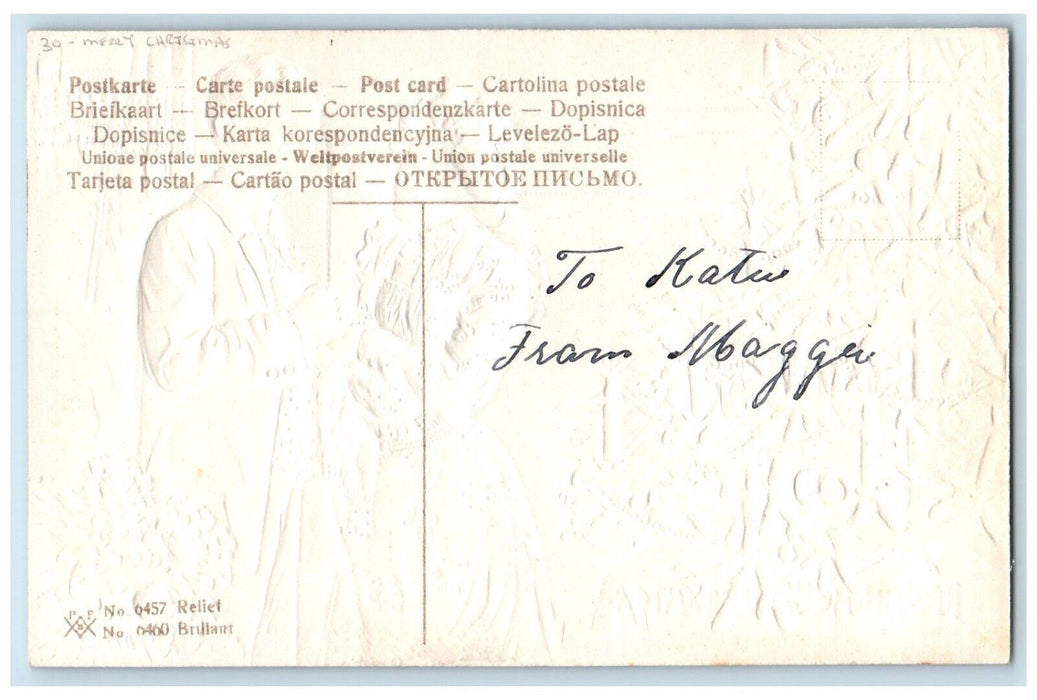 30 - MERRY CHRISTMAS
Postkarte — Carte postale — Post card — Cartolina postale
Briefkaart — Brefkort — Correspondenzkarte — Dopisnica
Dopisnice — Karta korespondencyjna — Levelező-Lap
Unione postale universale - Weltpostverein - Union postale universelle
Tarjeta postal — Cartão postal — ОТКРЫТОЕ ПИСЬМО.
To Katie
From Maggie
P F B
No. 6457 Relief
No. 6460 Brillant